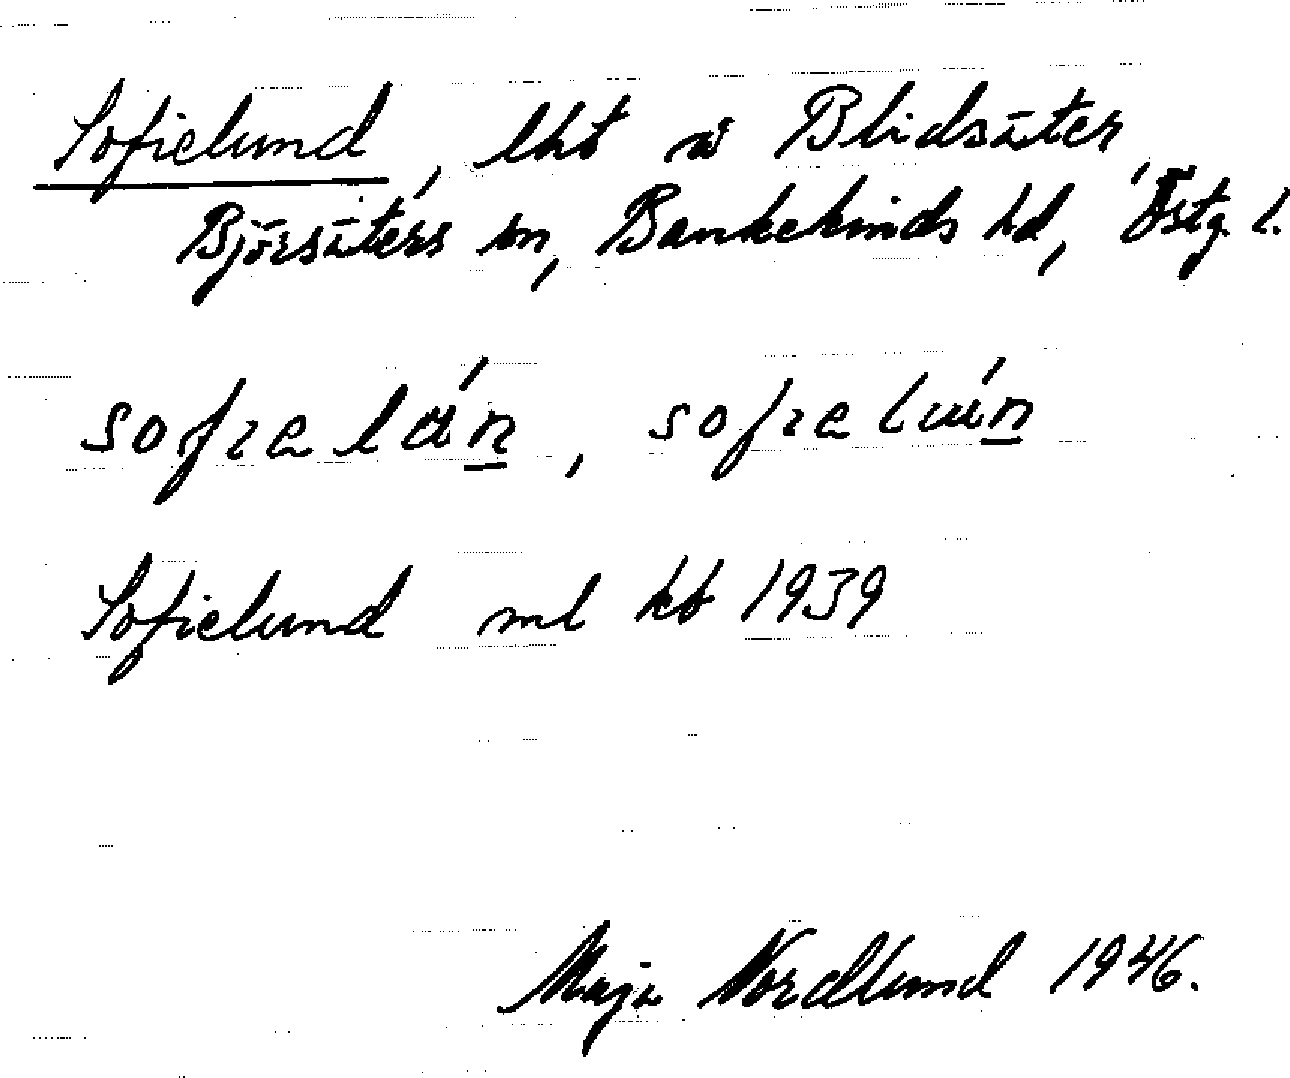 Sofielund, lht å Blidsäter,
Björsäters sn, Bankekinds hd, Östg. l.
sofıelán, sofıeluın
Sofielund ml kb 1939
Maja Nordlund 1946.